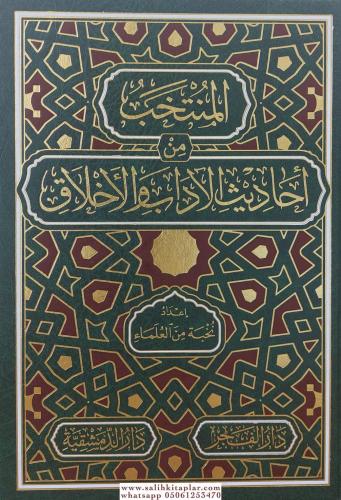 المُنْتَخَبُ
مِنْ
أَحَادِيثِ الآدَابِ وَالأَخْلَاقِ
إِعْدَادُ
نُخْبَة مِنَ العُلَمَاءِ
دَارُ الفَجْرِ
دَارُ الدِّمَشْقِيَّة
www.salihkitaplar.com
whatsapp 05061253470